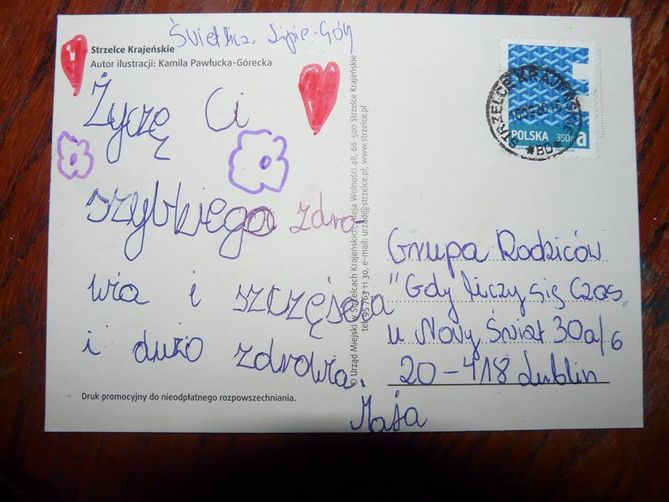 Świetlica Lipie-Gór
Strzelce Krajeńskie
Autor ilustracji: Kamila Pawłucka-Górecka
Życzę Ci
szybkiego zdro-
wia i szczęścia
i dużo zdrowia.
Maja
Druk promocyjny do nieodpłatnego rozpowszechniania.
© Urząd Miejski w Strzelcach Krajeńskich, Aleja Wolności 48, 66-500 Strzelce Krajeńskie
tel. 95 763 11 30, e-mail: urzad@strzelce.pl, www.strzelce.pl
STRZELCE KRAJEŃSKIE
POLSKA 350g a
Grupa Rodziców
"Gdy liczy się Czas„
u Nowy Świat 30a/6
20-418 Lublin